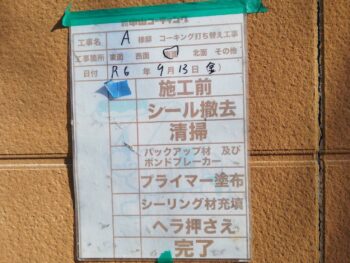 工事名 A 様邸 コーキング打ち替え工事
工事箇所 東面 西面 南面 北面 その他
日付 R6 年 9月 13日(金)
施工前
シール撤去
清掃
バックアップ材 及び
ボンドブレーカー
プライマー塗布
シーリング材充填
ヘラ押さえ
完了